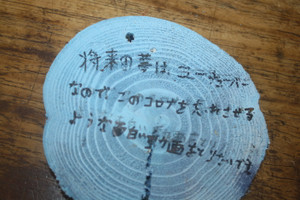 将来の夢は、ユーチューバー
なので、このコロナを忘れさせる
ような面白い動画をとりたいです